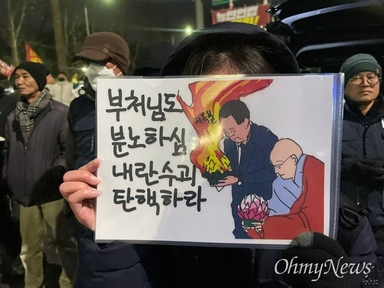 부처님도
분노하심
내란수괴
탄핵하라
OhmyNews